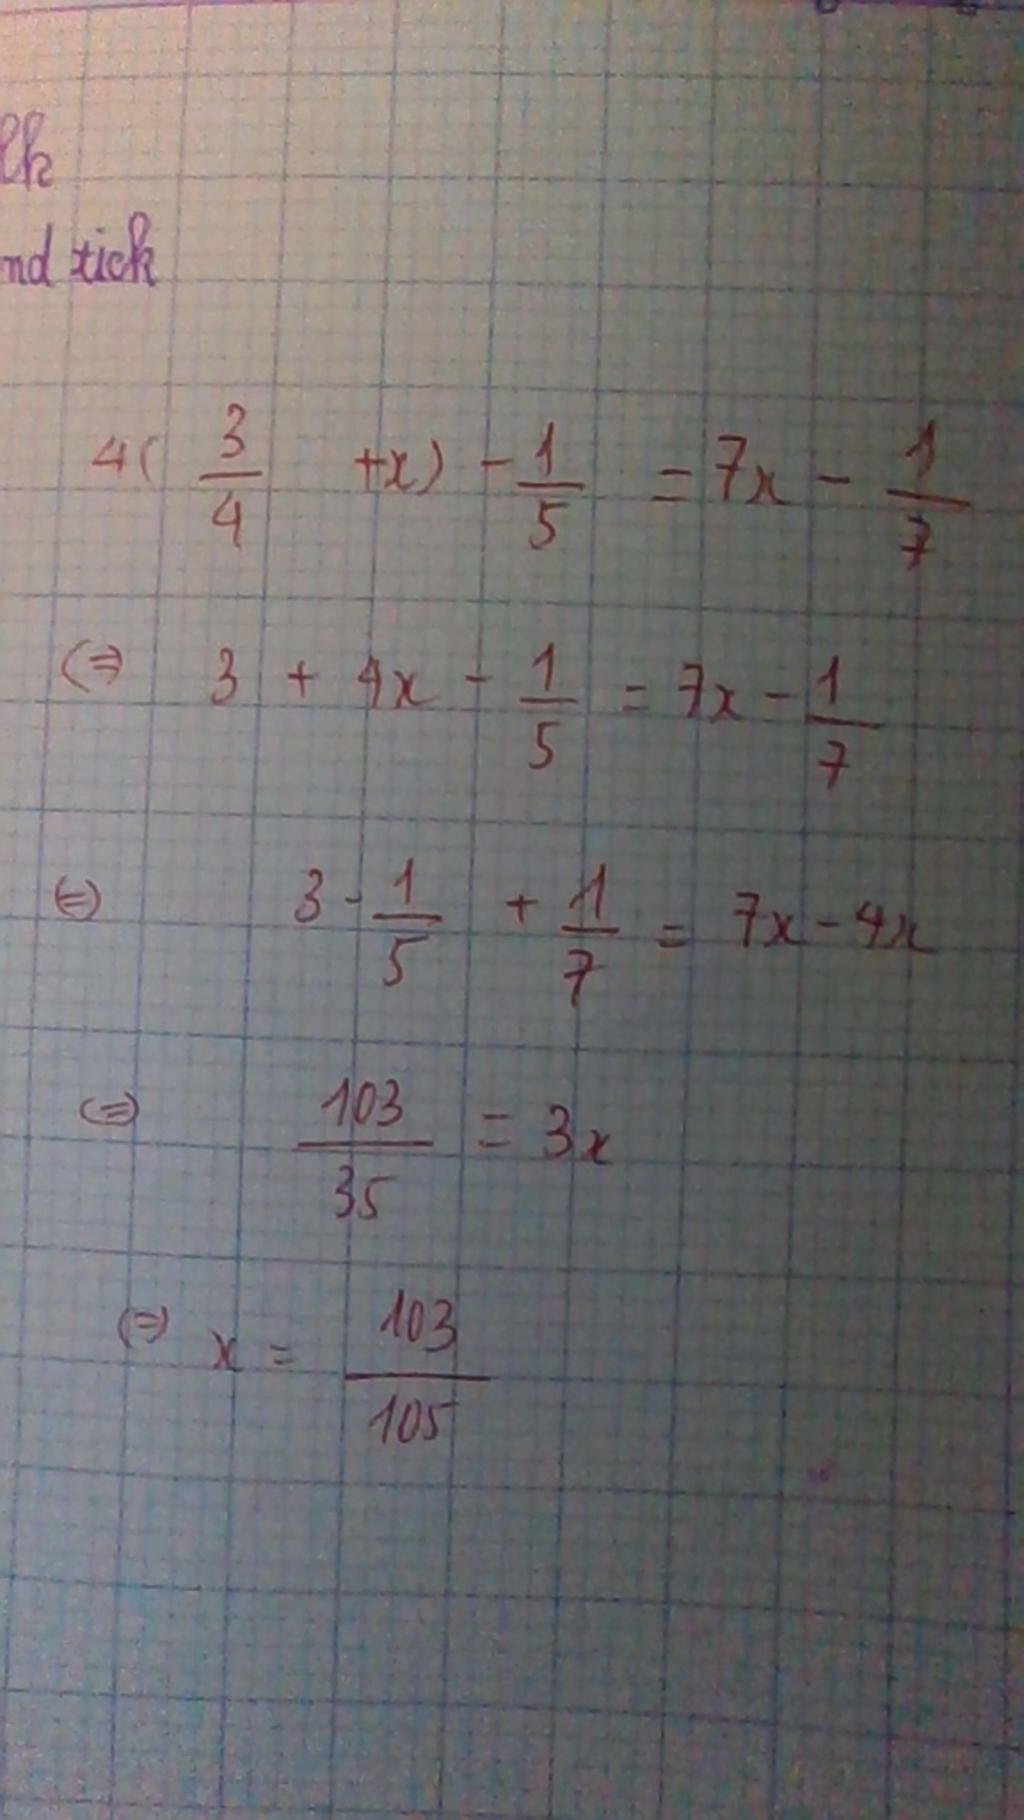 nd tick
4( 3/4 +x) - 1/5 = 7x - 1/7
(=) 3 + 4x - 1/5 = 7x - 1/7
(=) 3 - 1/5 + 1/7 = 7x - 4x
(=) 103/35 = 3x
(=) x = 103/105